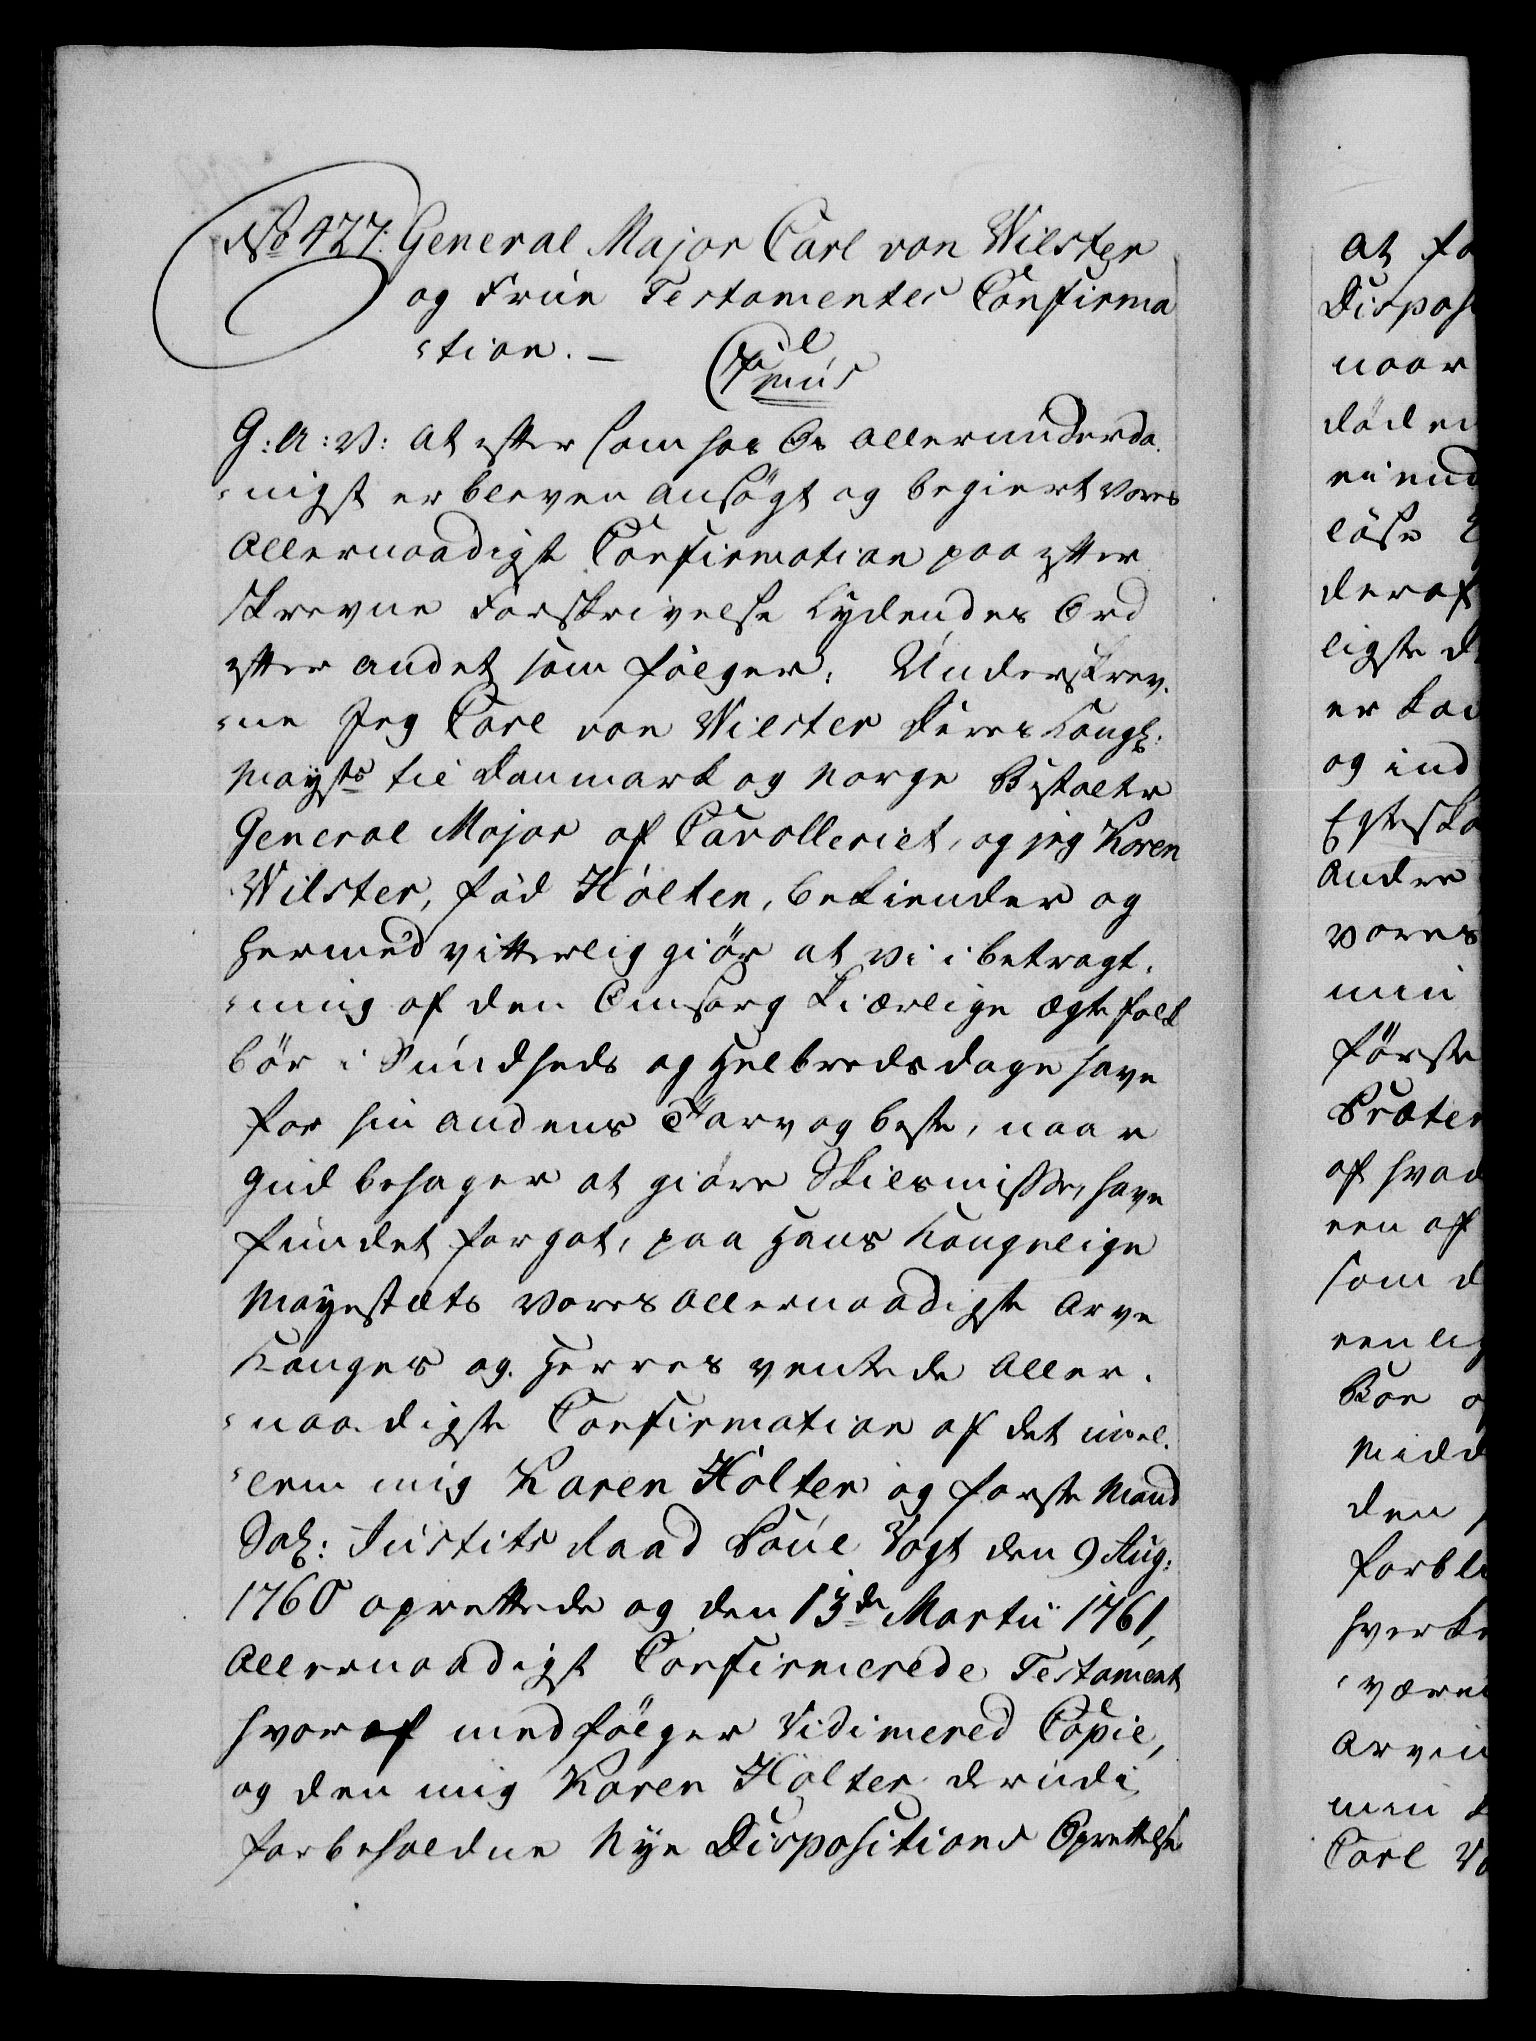 No 427. General Major Carl von Wilster
og Frue Testamentes Confirma
-tion. —
G: A: V: at efter som hos Os allerunderda
-nigst er bleven ansögt og begiert Vores
Allernaadigst Confirmation paa efter
skrevne Forskrivelse Lydendes Ord
efter andet som fölger. Underskrev
-ne Jeg Carl von Wilster Deres Kongl:
Maysts til Danmark og Norge Bestalter
General Major af Cavalleriet, og jeg Karen
Wilster, föd Holten, bekiender og
hermed vitterlig giör at vi i betragt
-ning af den Omsorg kiærlige Ægtefolk
bör i Sundheds og Helbreds dage have
for hin andens Tarv og beste, naar
Gud behager at giöre Skilsmisse, have
fundet for got, paa Hans Kongelige
Mayestæts Vores Allernaadigste Arve
Konges og Herres ventede Aller
-naadigste Confirmation af det imel
-lem mig Karen Holten og forste Mand
Sal: Justits Raad Poul Vogt den 9 Aug:
1760 oprettede og den 13de Martii 1761,
Allernaadigst Confirmerede Testament
hvoraf medfölger Vidimered Copie,
og den mig Karen Holten derudi
forbeholdne Nye Dispositions Oprettelse
at fo
Disposi
naar
döden
eiend
löse
deraf
ligste d
er kan
og ind
Egteska
andre
vores
min
förste
Præten
af hvad
een af
som d
eenlig
Boe o
Midd
den
forbli
hverke
være
Arvin
min
Carl Vo